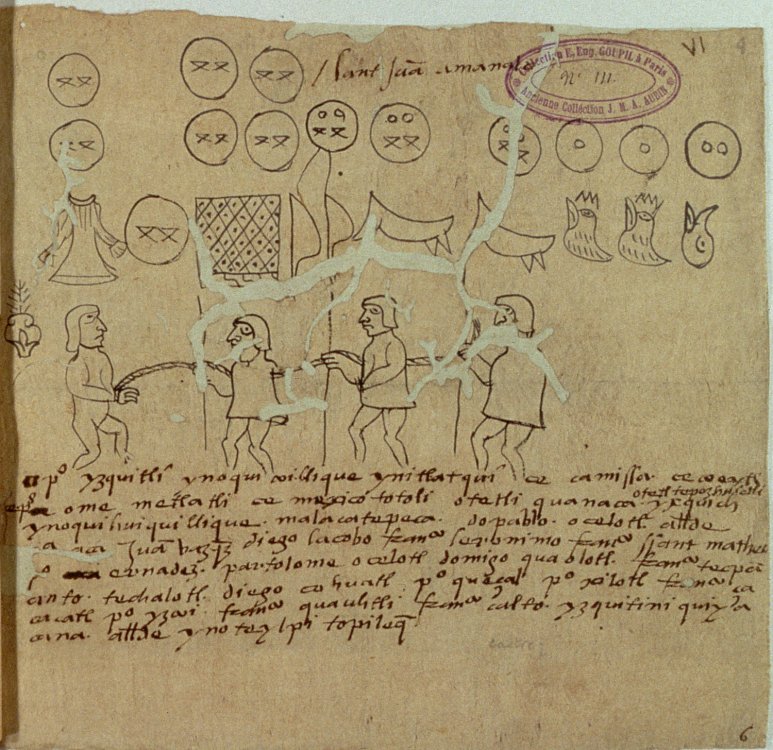 VI 4
/ Sant Juā amanal
Collection E. Eug. GOUPIL à Paris
Nº III.
Ancienne Collection J. M. A. AUBIN
pº yzquitli ynoqui cuillique ynitlatqui ce camissa
ome metlatli ce mexico totoli otetli quanaca yxquich
otetl tepozhuictli
ynoquihuiquillique malacatepeca do pablo ocelotl allde
Juā vazqz diego Jacobo franco Jeronimo franco Sant matheo
ernadez partolome ocelotl domigo quaolotl franco tecpa
anto techalotl diego cohuatl pº queçal pº xilotl franco ca
cacatl pº yzcui franco quauhtli franco calto yzquitini quixla
cana allde ynoteylpi topileq
6